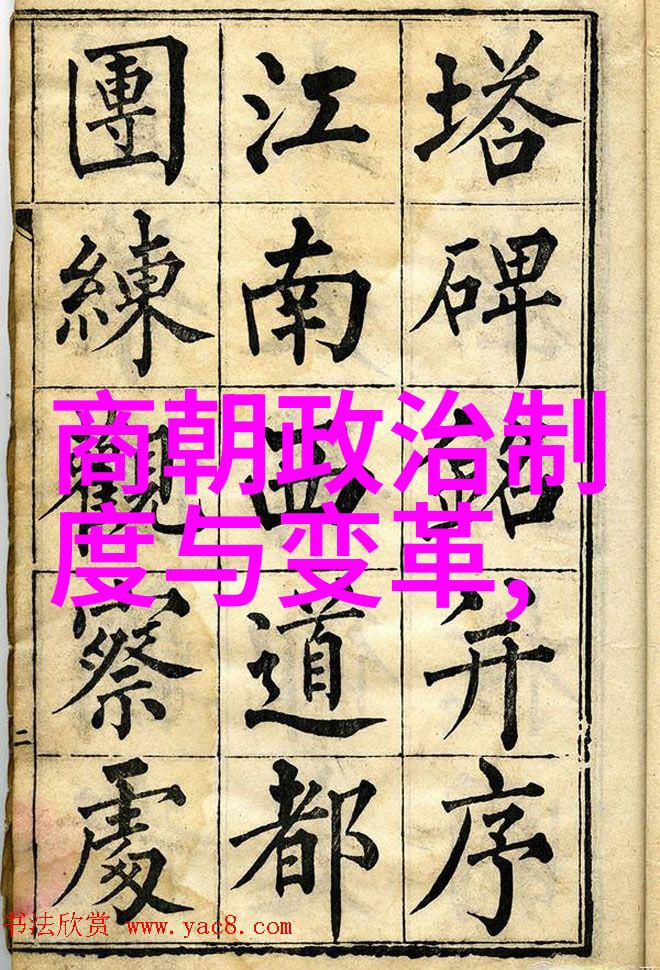 塔碑銘并序
江南西道都
團練觀察處
二
商朝政治制
度与变革,
书法欣赏 www.yac8.com